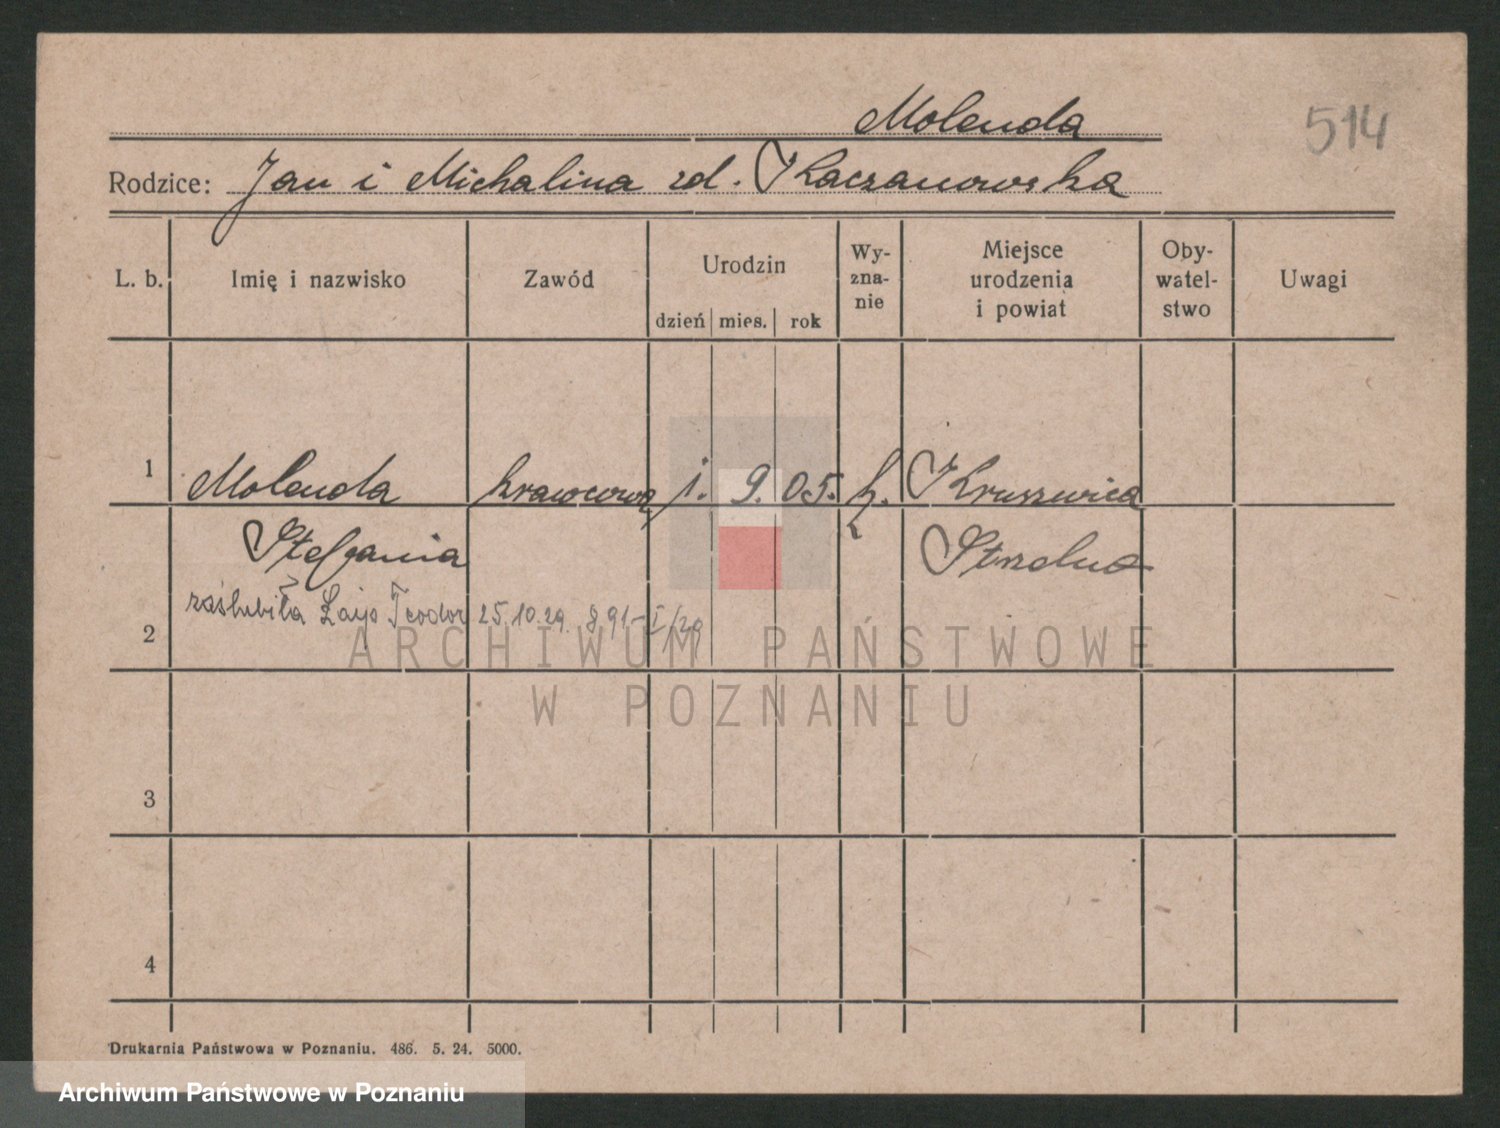 Molenda
514
Rodzice: Jan i Michalina zd. Kaczanowska
L. b. Imię i nazwisko Zawód Urodzin dzień mies. rok Wy-zna-nie Miejsce urodzenia i powiat Oby-watel-stwo Uwagi
1 Molenda krawcowa 1. 9. 05. k. Kruszwica
Stefania Strzelno
2 zaślubiła Teodor 25.10.29. 891-I/29
ARCHIWUM PAŃSTWOWE
W POZNANIU
3
4
Drukarnia Państwowa w Poznaniu. 486. 5. 24. 5000.
Archiwum Państwowe w Poznaniu